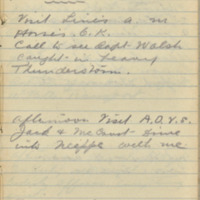 Visit Lines a.m
Horses O.K.
Call to see Capt Walsh
Caught in heavy
Thunderstorm.
Afternoon Visit A.D.V.S.
Jack & McCunt dine
with me